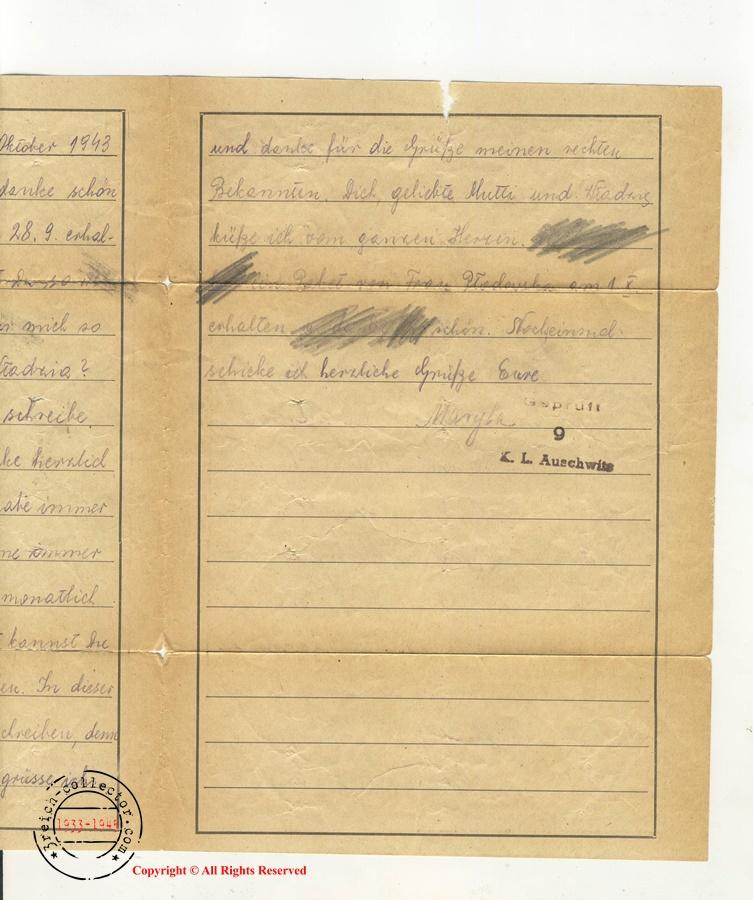 Oktober 1943
danke schön
28.9. erhal-
mich so
Władzia?
schreibe
herzlich
immer
immer
monatlich
kannst Du
en. In dieser
chreiben, denn
grüsse ich
und danke für die Grüße meinen rechten
Bekannten. Dich, geliebte Mutti und Władzię
küße ich vom ganzen Herzen.
ein Paket von Frau am 1.X.
erhalten schön. Nocheinmal
schicke ich herzliche Grüße Eure
Maryla
Geprüft
9
K. L. Auschwitz
3reich-collector.com
1933-1945
Copyright © All Rights Reserved